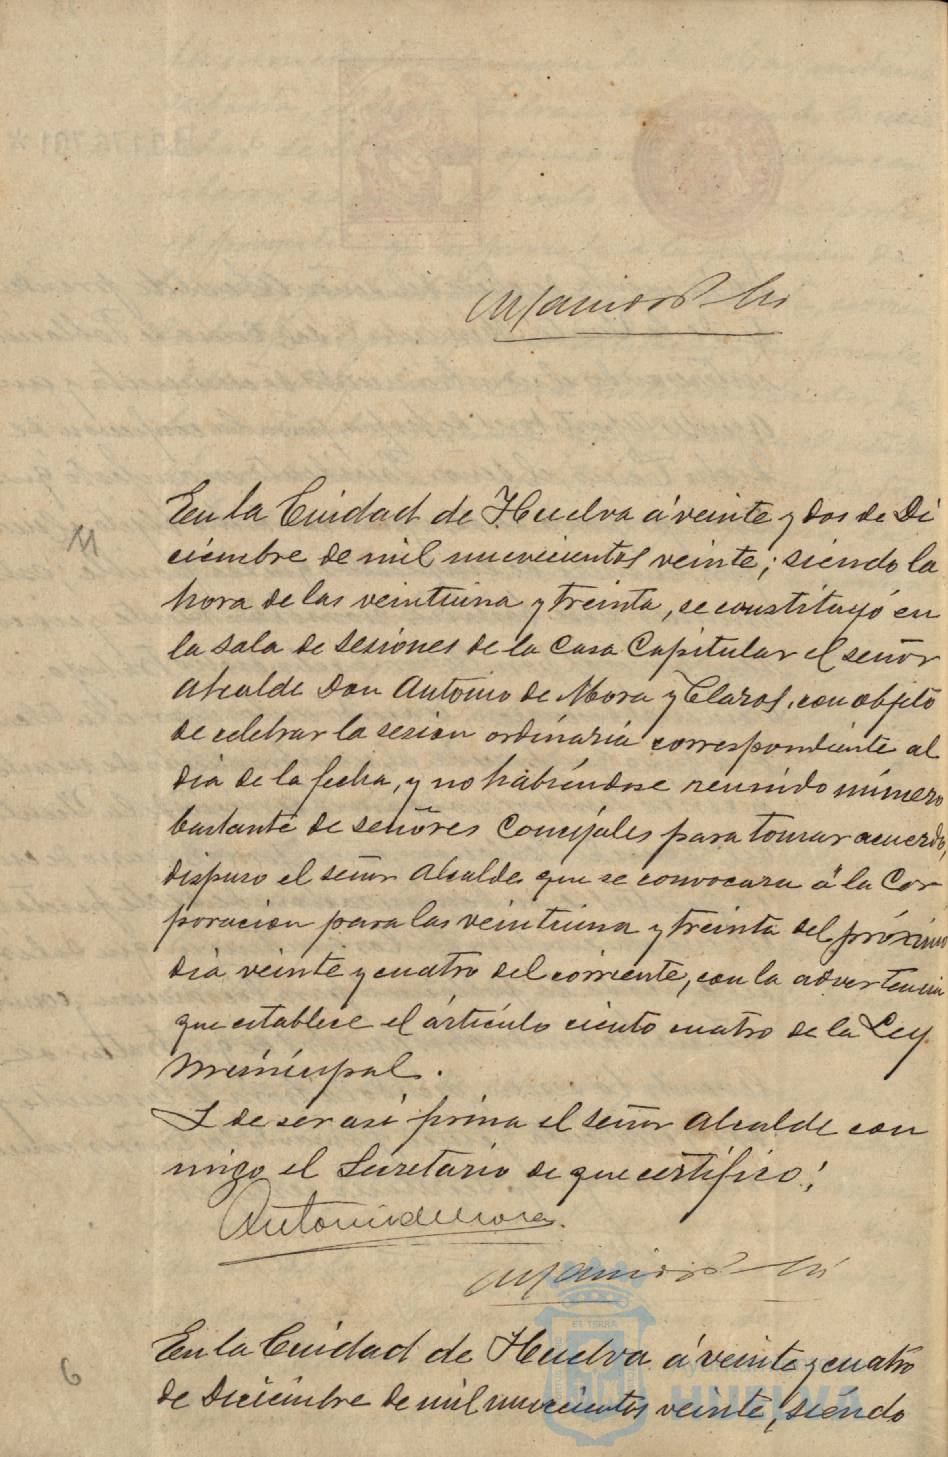 En la Ciudad de Huelva á veinte y dos de Di
ciembre de mil nuevecientos veinte; siendo la
hora de las veintiuna y treinta, se constituyó en
la sala de sesiones de la Casa Capitular el señor
Alcalde Don Antonio de Mora y Claros, con objeto
de celebrar la sesion ordinaria correspondiente al
dia de la fecha, y no habiendose reunido número
bastante de señores Concejales para tomar acuerdo,
dispuso el señor Alcalde que se convocara á la Cor
poracion para las veintiuna y treinta del próximo
dia veinte y cuatro del corriente, con la advertencia
que establece el artículo ciento cuatro de la Ley
Municipal.
Y de ser asi firma el señor Alcalde con
migo el Secretario de que certifico:
Antonio de Mora
En la Ciudad de Huelva á veinte y cuatro
de Diciembre de mil nuevecientos veinte, siendo
6
ET TERRA
HUELVA